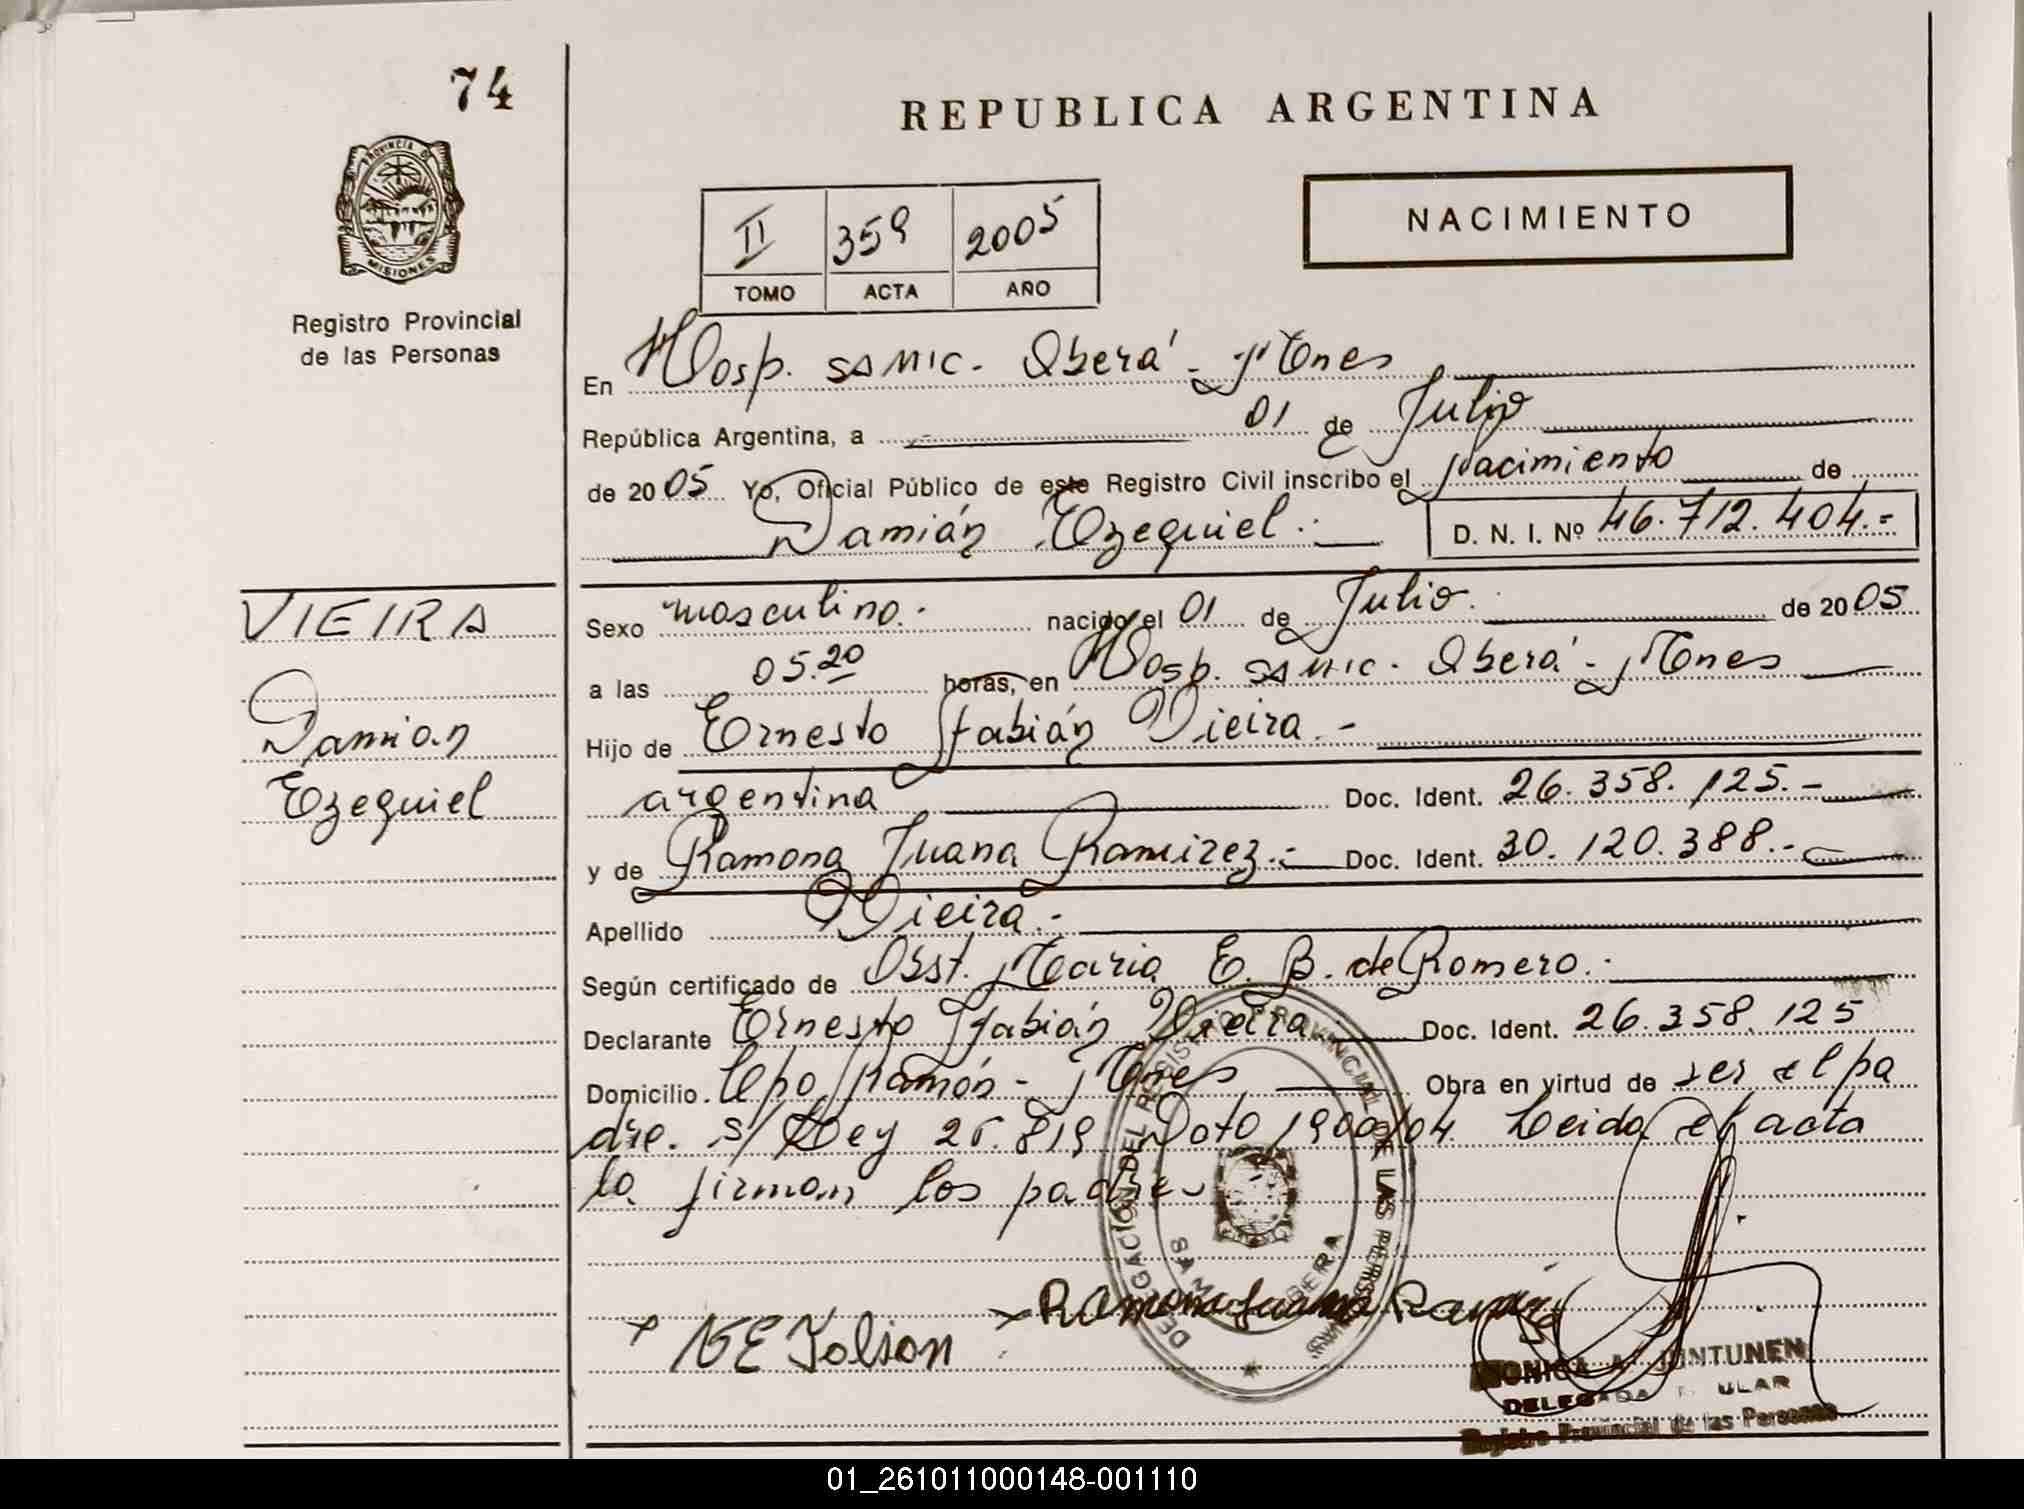 74
REPUBLICA ARGENTINA
PROVINCIA DE
MISIONES
Registro Provincial
de las Personas
II 359 2005
TOMO ACTA AÑO
NACIMIENTO
En Hosp. SAMIC. Oberá - Mnes
República Argentina, a 01 de Julio
de 2005 Yo, Oficial Público de este Registro Civil inscribo el Nacimiento de
Damián Ezequiel.- D. N. I. Nº 46.712.404.-
VIEIRA
Damian
Ezequiel
Sexo masculino. nacido el 01 de Julio. de 2005
a las 05.20 horas, en Hosp. SAMIC. Oberá - Mnes
Hijo de Ernesto Fabián Vieira.-
argentina Doc. Ident. 26.358.125.-
y de Ramona Juana Ramirez.- Doc. Ident. 30.120.388.-
Apellido Vieira.-
Según certificado de Obst. Maria E. B. de Romero.-
Declarante Ernesto Fabián Vieira Doc. Ident. 26.358.125
Domicilio. Cpo Ramón - Mnes Obra en virtud de ser el pa
dre. S/ Ley 25.819 Dcto 1900/04 Leida el acta
la firman los padres
DELEGACIÓN DEL REGISTRO PROVINCIAL DE LAS PERSONAS
Ramona Juana Ramirez
MONICA A. JUNTUNEN
DELEGADA TITULAR
Registro Provincial de las Personas
01_261011000148-001110